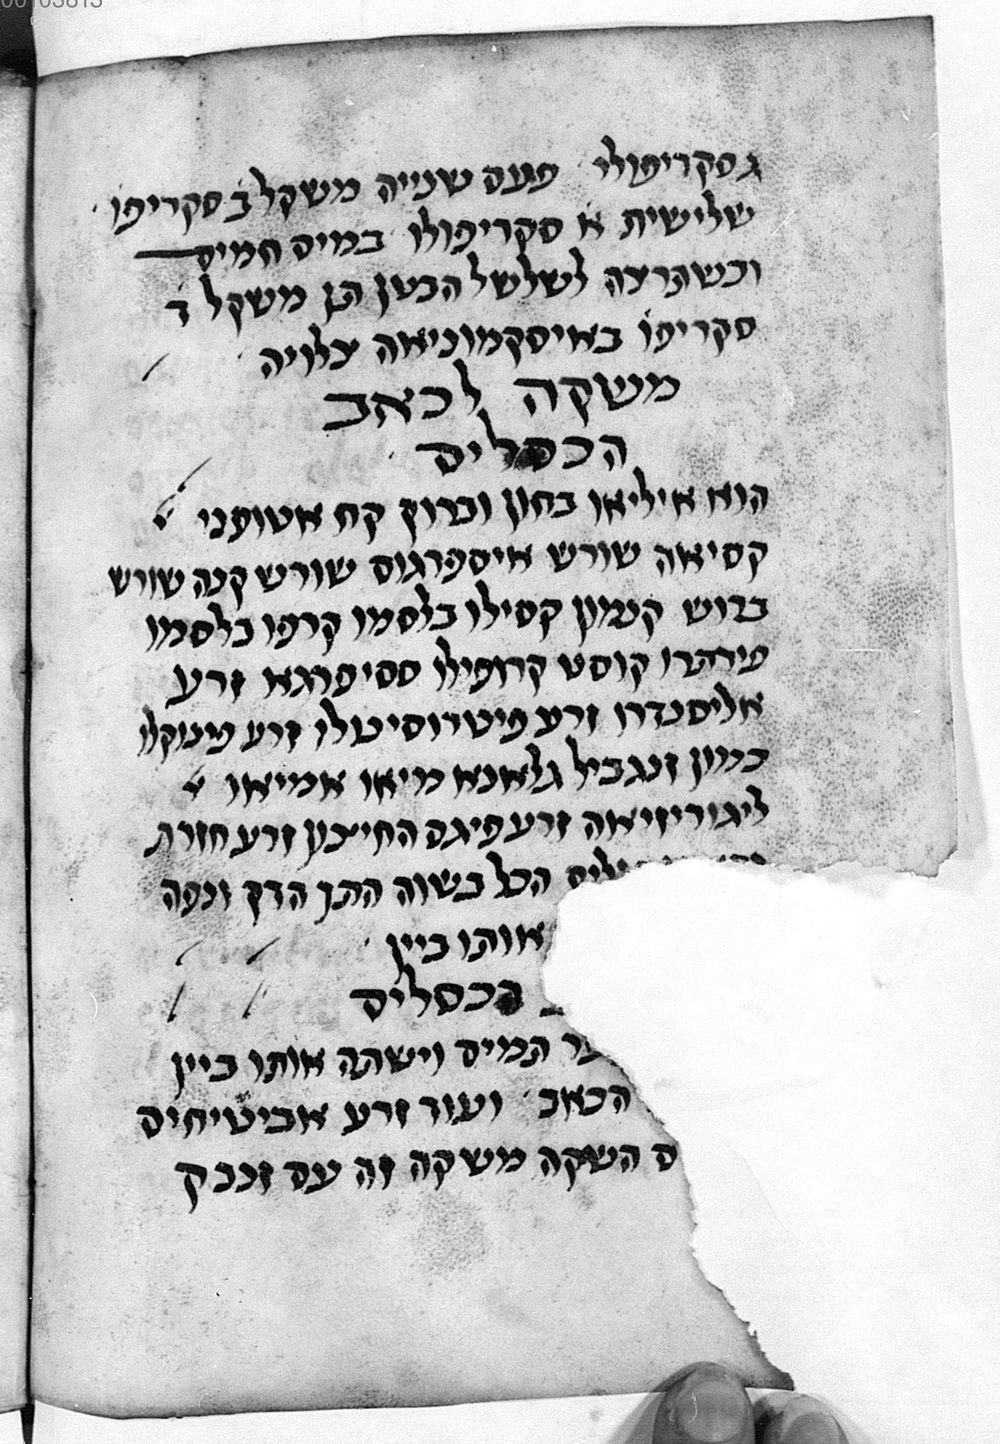 00103813
ג סקריפולי פעם שנייה משקל ב סקריפו
שלישית א סקריפולו במים חמים
וכשתרצה לשלשל הבטן תן משקל ד
סקריפו באיסקמוניאה צלויה
משקה לכאב
הכסלים
הוא איליאו בחון וברוק קח אטועני
קסיאה שורש איספרגוס שורש קנה שורש
ברוש קנמון קסילו בלסמו קרפו בלסמו
קוסט קרופילי ססיפרגא זרע
אליסנדרו זרע פיטרוסיטולו זרע פינוקלו
כמון זנגביל גלאנגא מיאו אמיאו
ליגוריזיאה זרע פיגם החיצון זרע חזרת
הכל בשוה התך הדק ונפה
אותו ביין
הכסלים
המים וישתה אותו ביין
הכאב ועוד זרע אביטיחים
ם השקה משקה זה עם זנבק